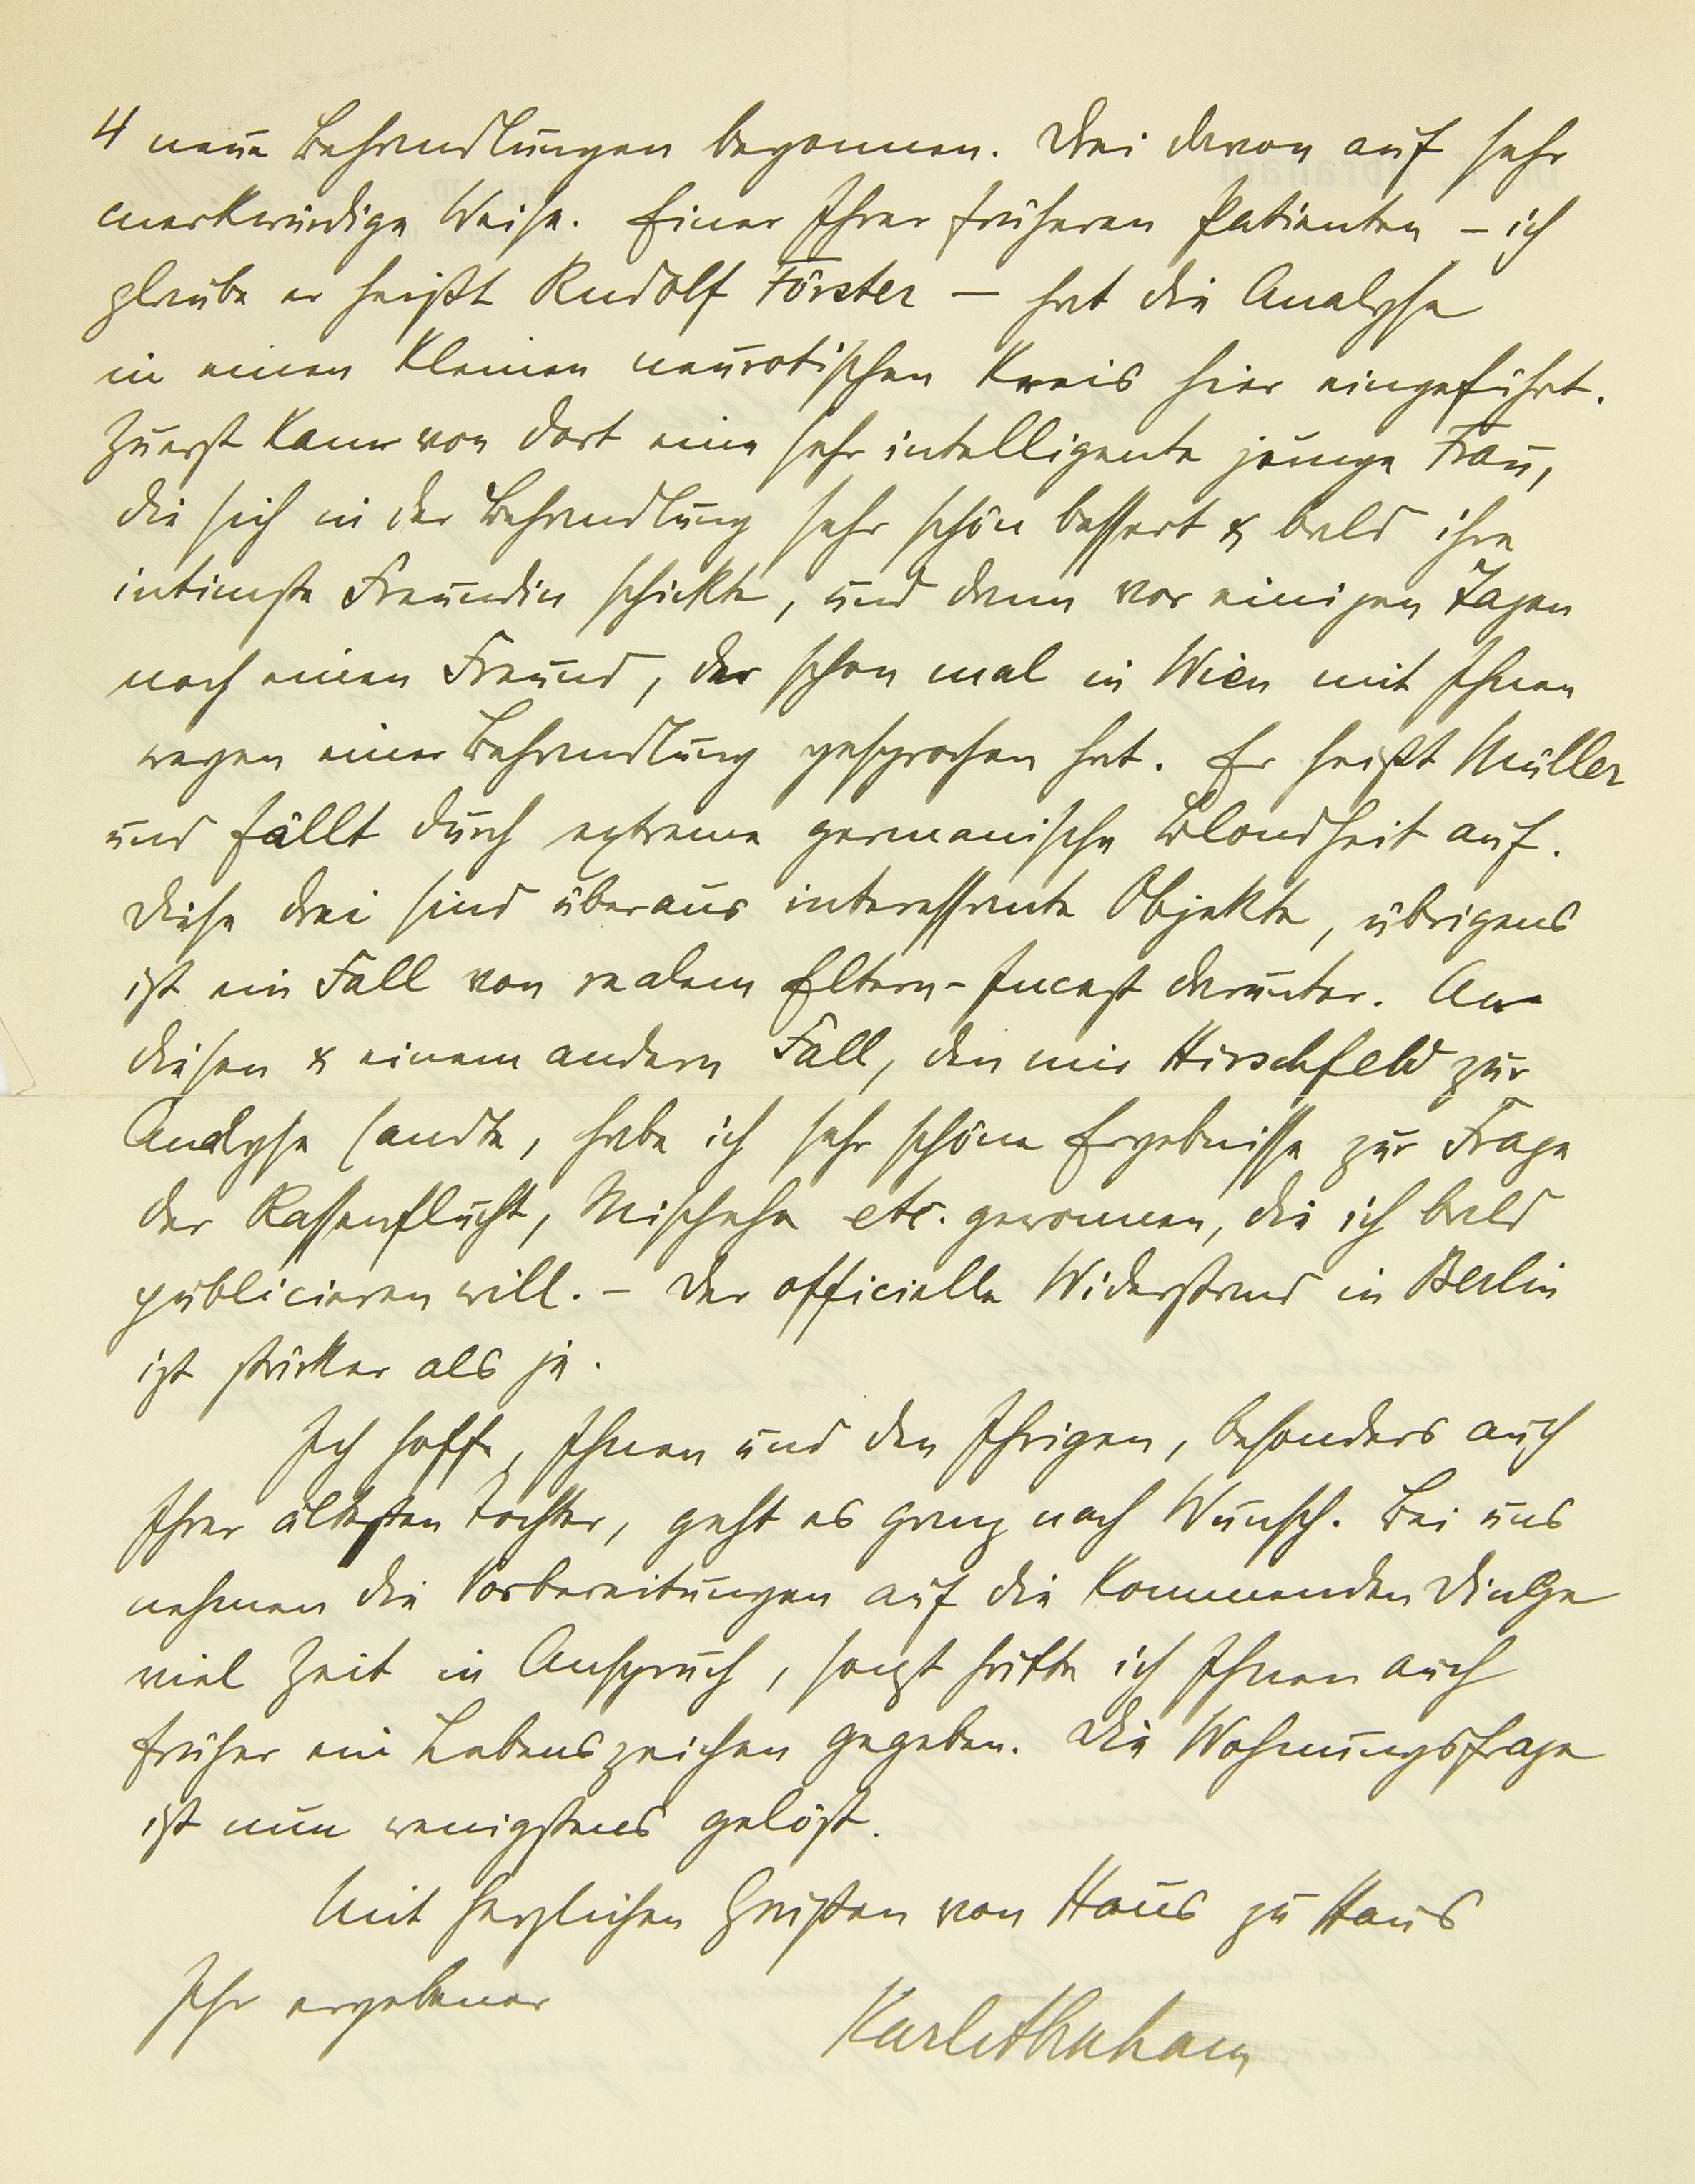 4 neue Behandlungen begonnen. Drei davon auf sehr
merkwürdige Weise. Einer Ihrer früheren Patienten – ich
glaube er heißt Rudolf Förster – hat die Analyse
in einen kleinen neurotischen Kreis hier eingeführt.
Zuerst kam von dort eine sehr intelligente junge Frau,
die sich in der Behandlung sehr schön bessert & bald ihre
intimste Freundin schickte, und dann vor einigen Tagen
noch einen Freund, der schon mal in Wien mit Ihnen
wegen einer Behandlung gesprochen hat. Er heißt Müller
und fällt durch extreme germanische Blondheit auf.
Diese drei sind überaus interessante Objekte, übrigens
ist ein Fall von realem Eltern-Incest darunter. An
diesen & einem andern Fall, den mir Hirschfeld zur
Analyse sandte, habe ich sehr schöne Ergebnisse zur Frage
der Rassenflucht, Mischehe etc. gewonnen, die ich bald
publicieren will. – Der officielle Widerstand in Berlin
ist stärker als je.
Ich hoffe, Ihnen und den Ihrigen, besonders auch
Ihrer ältesten Tochter, geht es ganz nach Wunsch. Bei uns
nehmen die Vorbereitungen auf die kommenden Dinge
viel Zeit in Anspruch, sonst hätte ich Ihnen auch
früher ein Lebenszeichen gegeben. Die Wohnungsfrage
ist nun wenigstens gelöst.
Mit herzlichen Grüßen von Haus zu Haus
Ihr ergebener
Karl Abraham